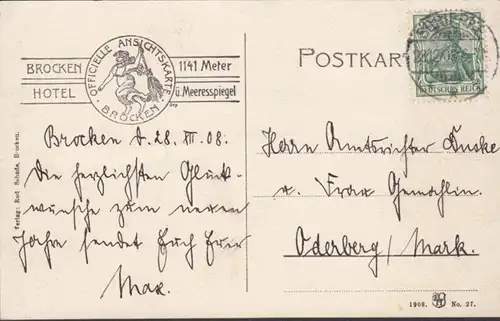 POSTKARTE
BROCKEN
HOTEL
OFFICIELLE ANSICHTSKARTE
BROCKEN
1141 Meter
ü. Meeresspiegel
DEUTSCHES REICH
Brocken d. 28. XII. 08.
Die herzlichsten Glück-
wünsche zum neuen
Jahre sendet Euch Euer
Max.
Herrn Amtsrichter
u. Frau Gemahlin.
Oderberg / Mark.
Verlag: Rud. Schade, Brocken.
1908.
No. 27.